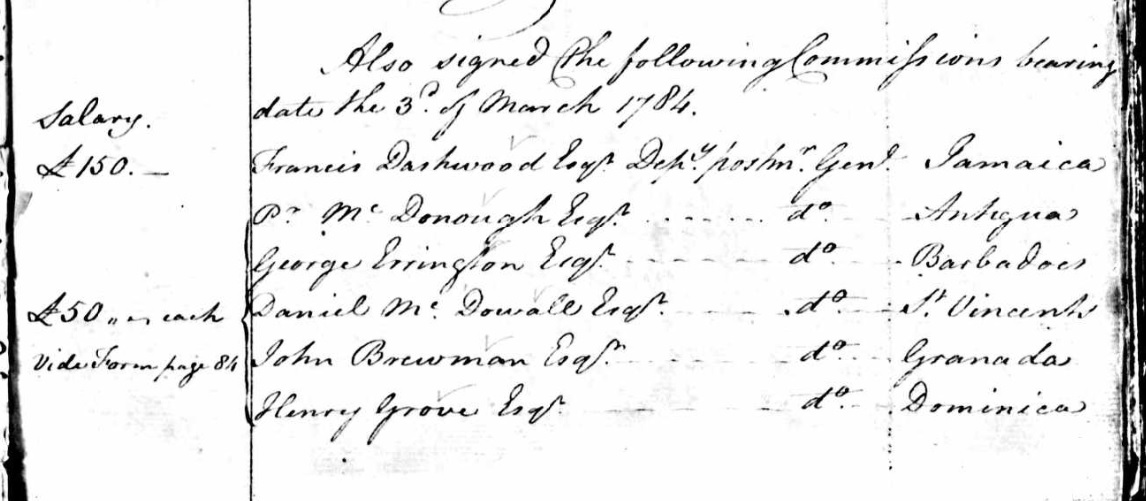 Also signed the following Commissions bearing
Salary. date the 3d. of March 1784.
£150.— Francis Dashwood Esqr. Depy. postmr. Genl. Jamaica
Pr. Mc Donough Esqr. do. Antigua
George Errington Esqr. do. Barbadoes
£50 „ „ each Daniel Mc. Dowall Esqr. do. St. Vincents
Vide Form page 84 John Brewman Esqr. do. Granada
Henry Grove Esqr. do. Dominica